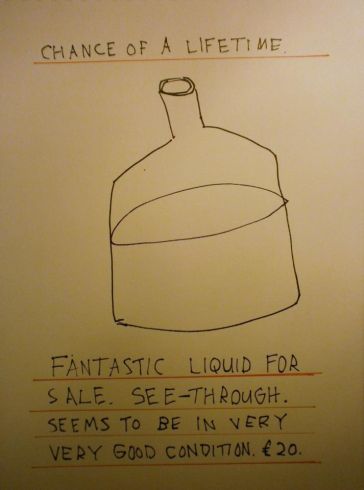 CHANCE OF A LIFETIME.
FANTASTIC LIQUID FOR
SALE. SEE-THROUGH.
SEEMS TO BE IN VERY
VERY GOOD CONDITION. €20.